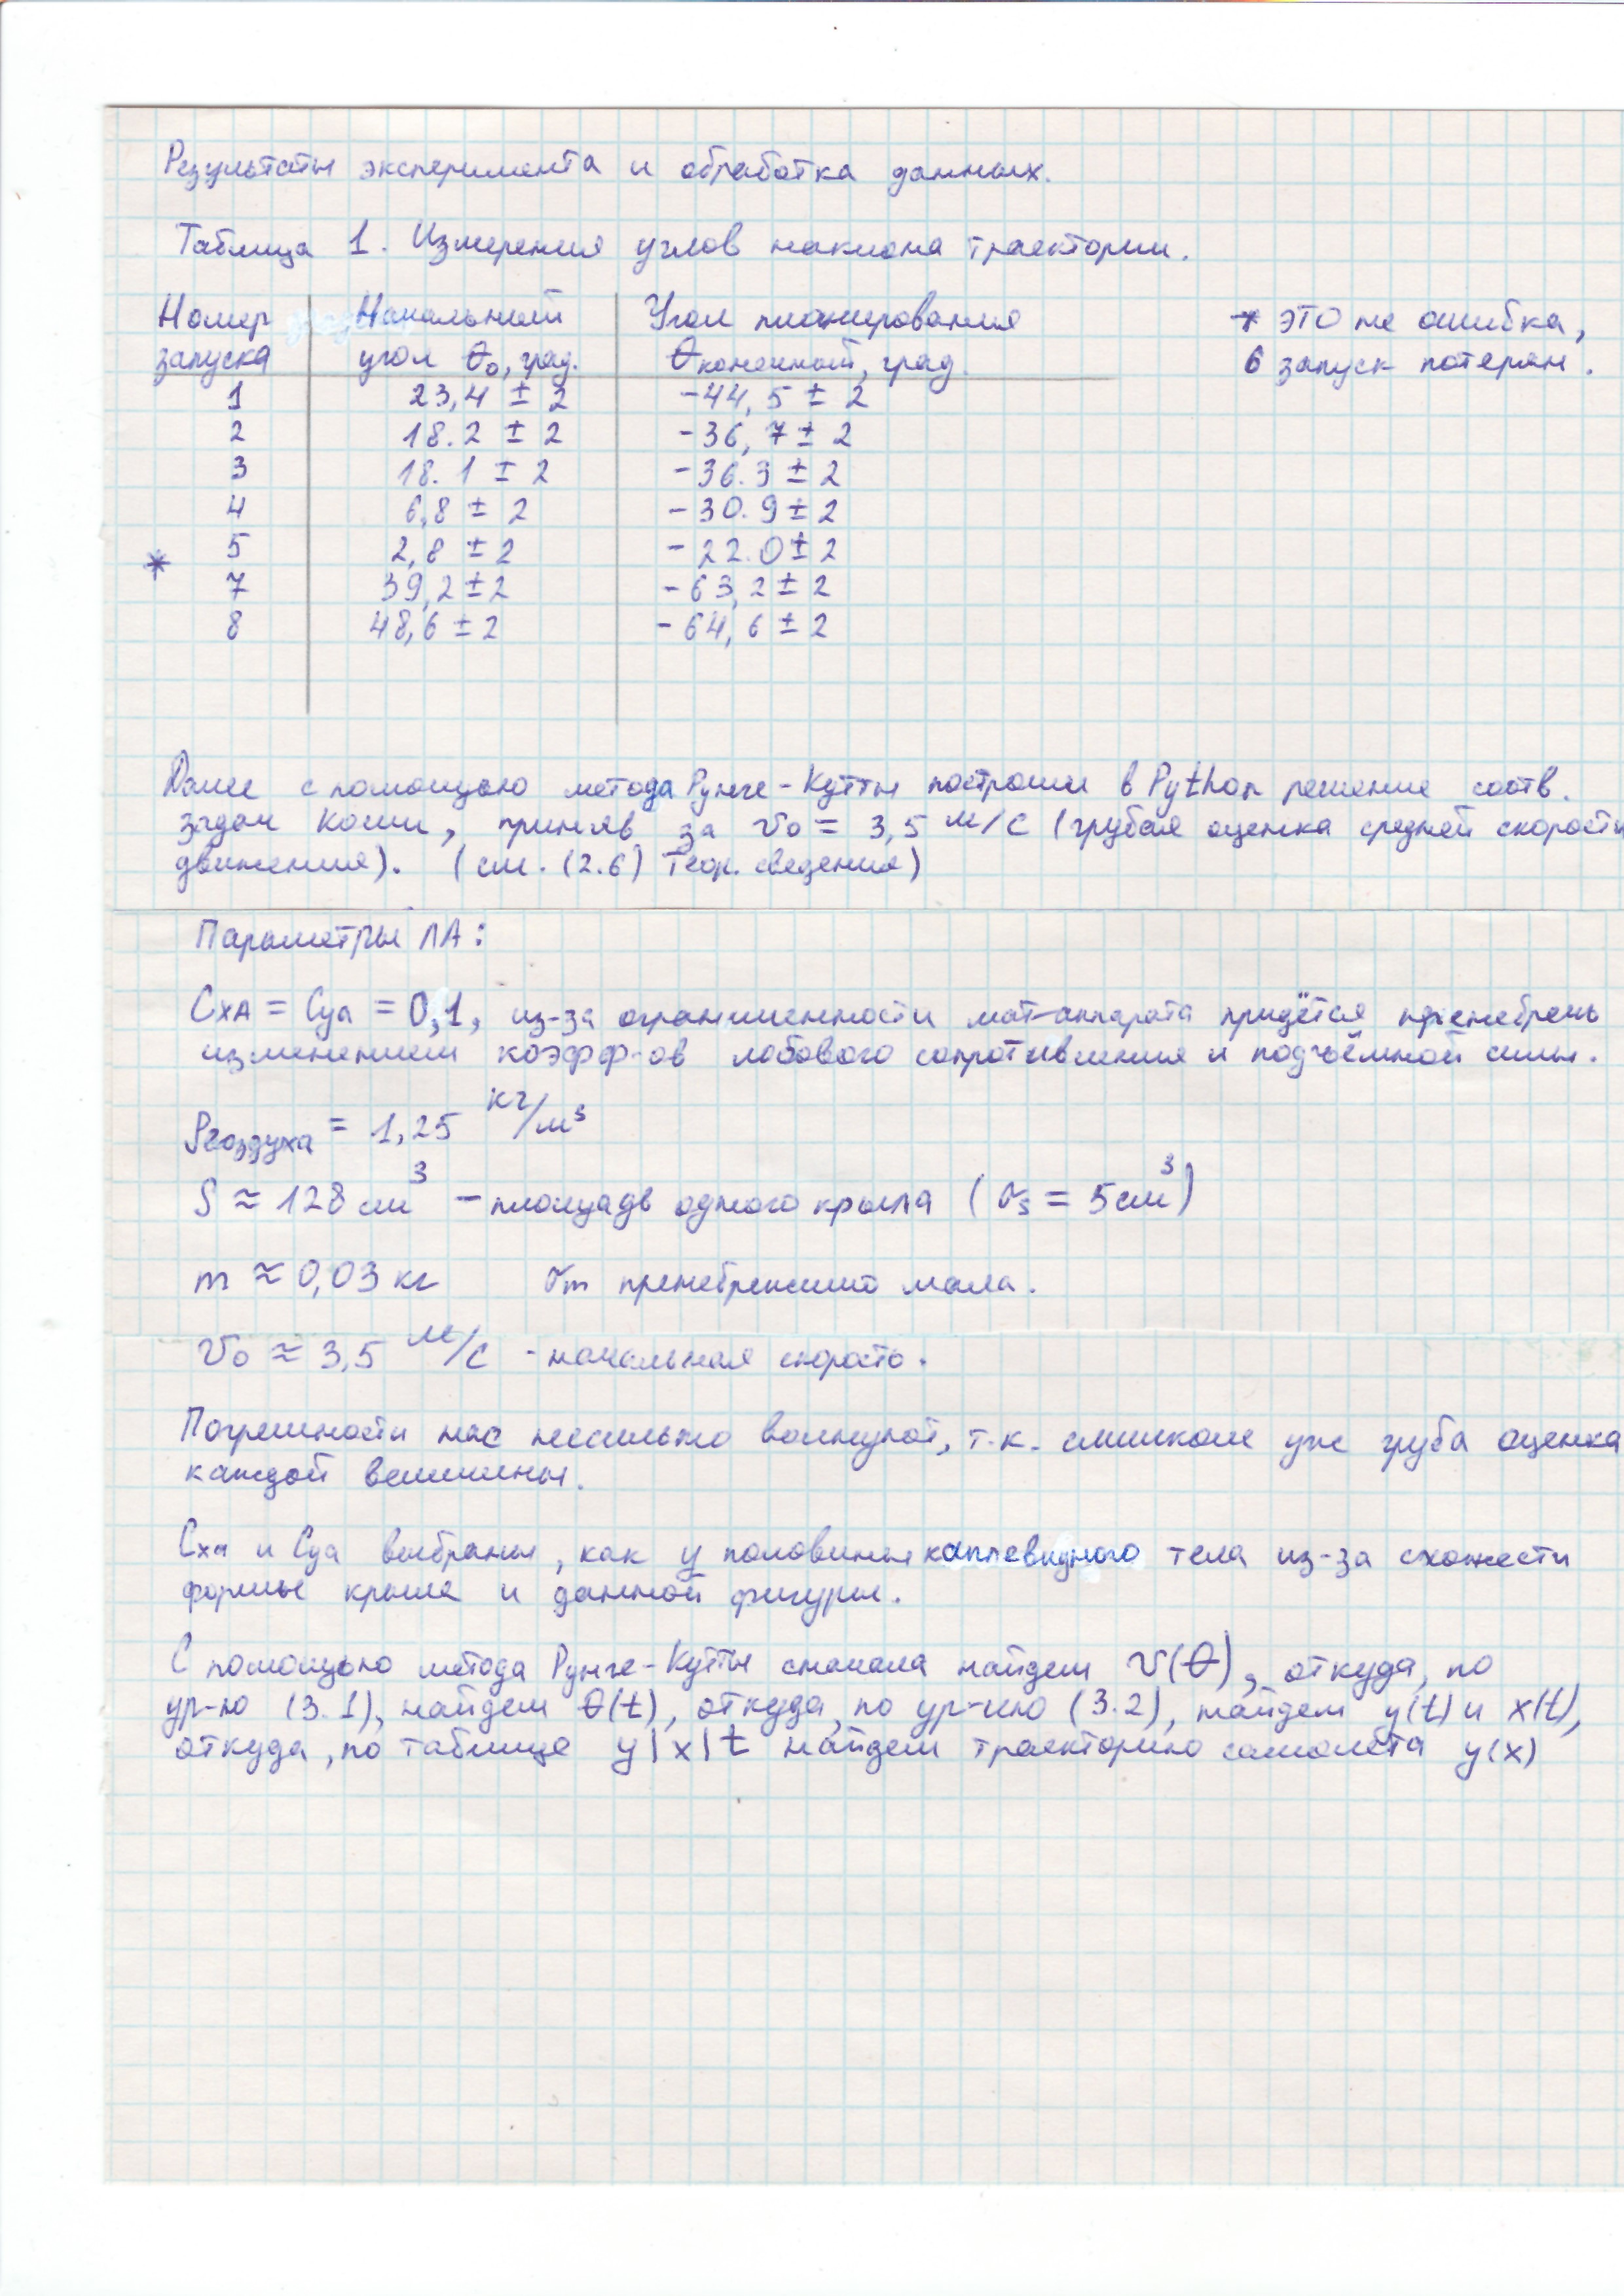 Результаты эксперимента и обработка данных.
Таблица 1. Измерения углов наклона траектории.
Номер запуска | Начальный угол θ₀, град. | Угол планирования θконечный, град.
* ЭТО не ошибка,
6 запуск потерян.
1 23,4 ± 2 -44,5 ± 2
2 18.2 ± 2 -36,7 ± 2
3 18.1 ± 2 -36.3 ± 2
4 6,8 ± 2 -30.9 ± 2
5 2,8 ± 2 -22.0 ± 2
*
7 39,2 ± 2 -63,2 ± 2
8 48,6 ± 2 -64,6 ± 2
Далее с помощью метода Рунге-Кутты построим в Python решение соотв.
задач Коши, приняв за v₀ = 3,5 м/с (грубая оценка средней скорости
движения). (см. (2.6) Теор. сведения)
Параметры ЛА:
Cxa = Cya = 0,1, из-за ограниченности мат-аппарата придётся пренебречь
изменением коэфф-ов лобового сопротивления и подъёмной силы.
ρвоздуха = 1,25 кг/м³
S ≈ 128 см³ - площадь одного крыла (σs = 5 см³)
m ≈ 0,03 кг σm пренебрежимо мала.
v₀ ≈ 3,5 м/с - начальная скорость.
Погрешности нас несильно волнуют, т.к. слишком уж груба оценка
каждой величины.
Cxa и Cya выбраны, как у половины каплевидного тела из-за схожести
формы крыла и данной фигуры.
С помощью метода Рунге-Кутты сначала найдем v(θ), откуда, по
ур-ю (3.1), найдем θ(t), откуда, по ур-ию (3.2), найдем y(t) и x(t),
откуда, по таблице y|x|t найдем траекторию самолёта y(x)